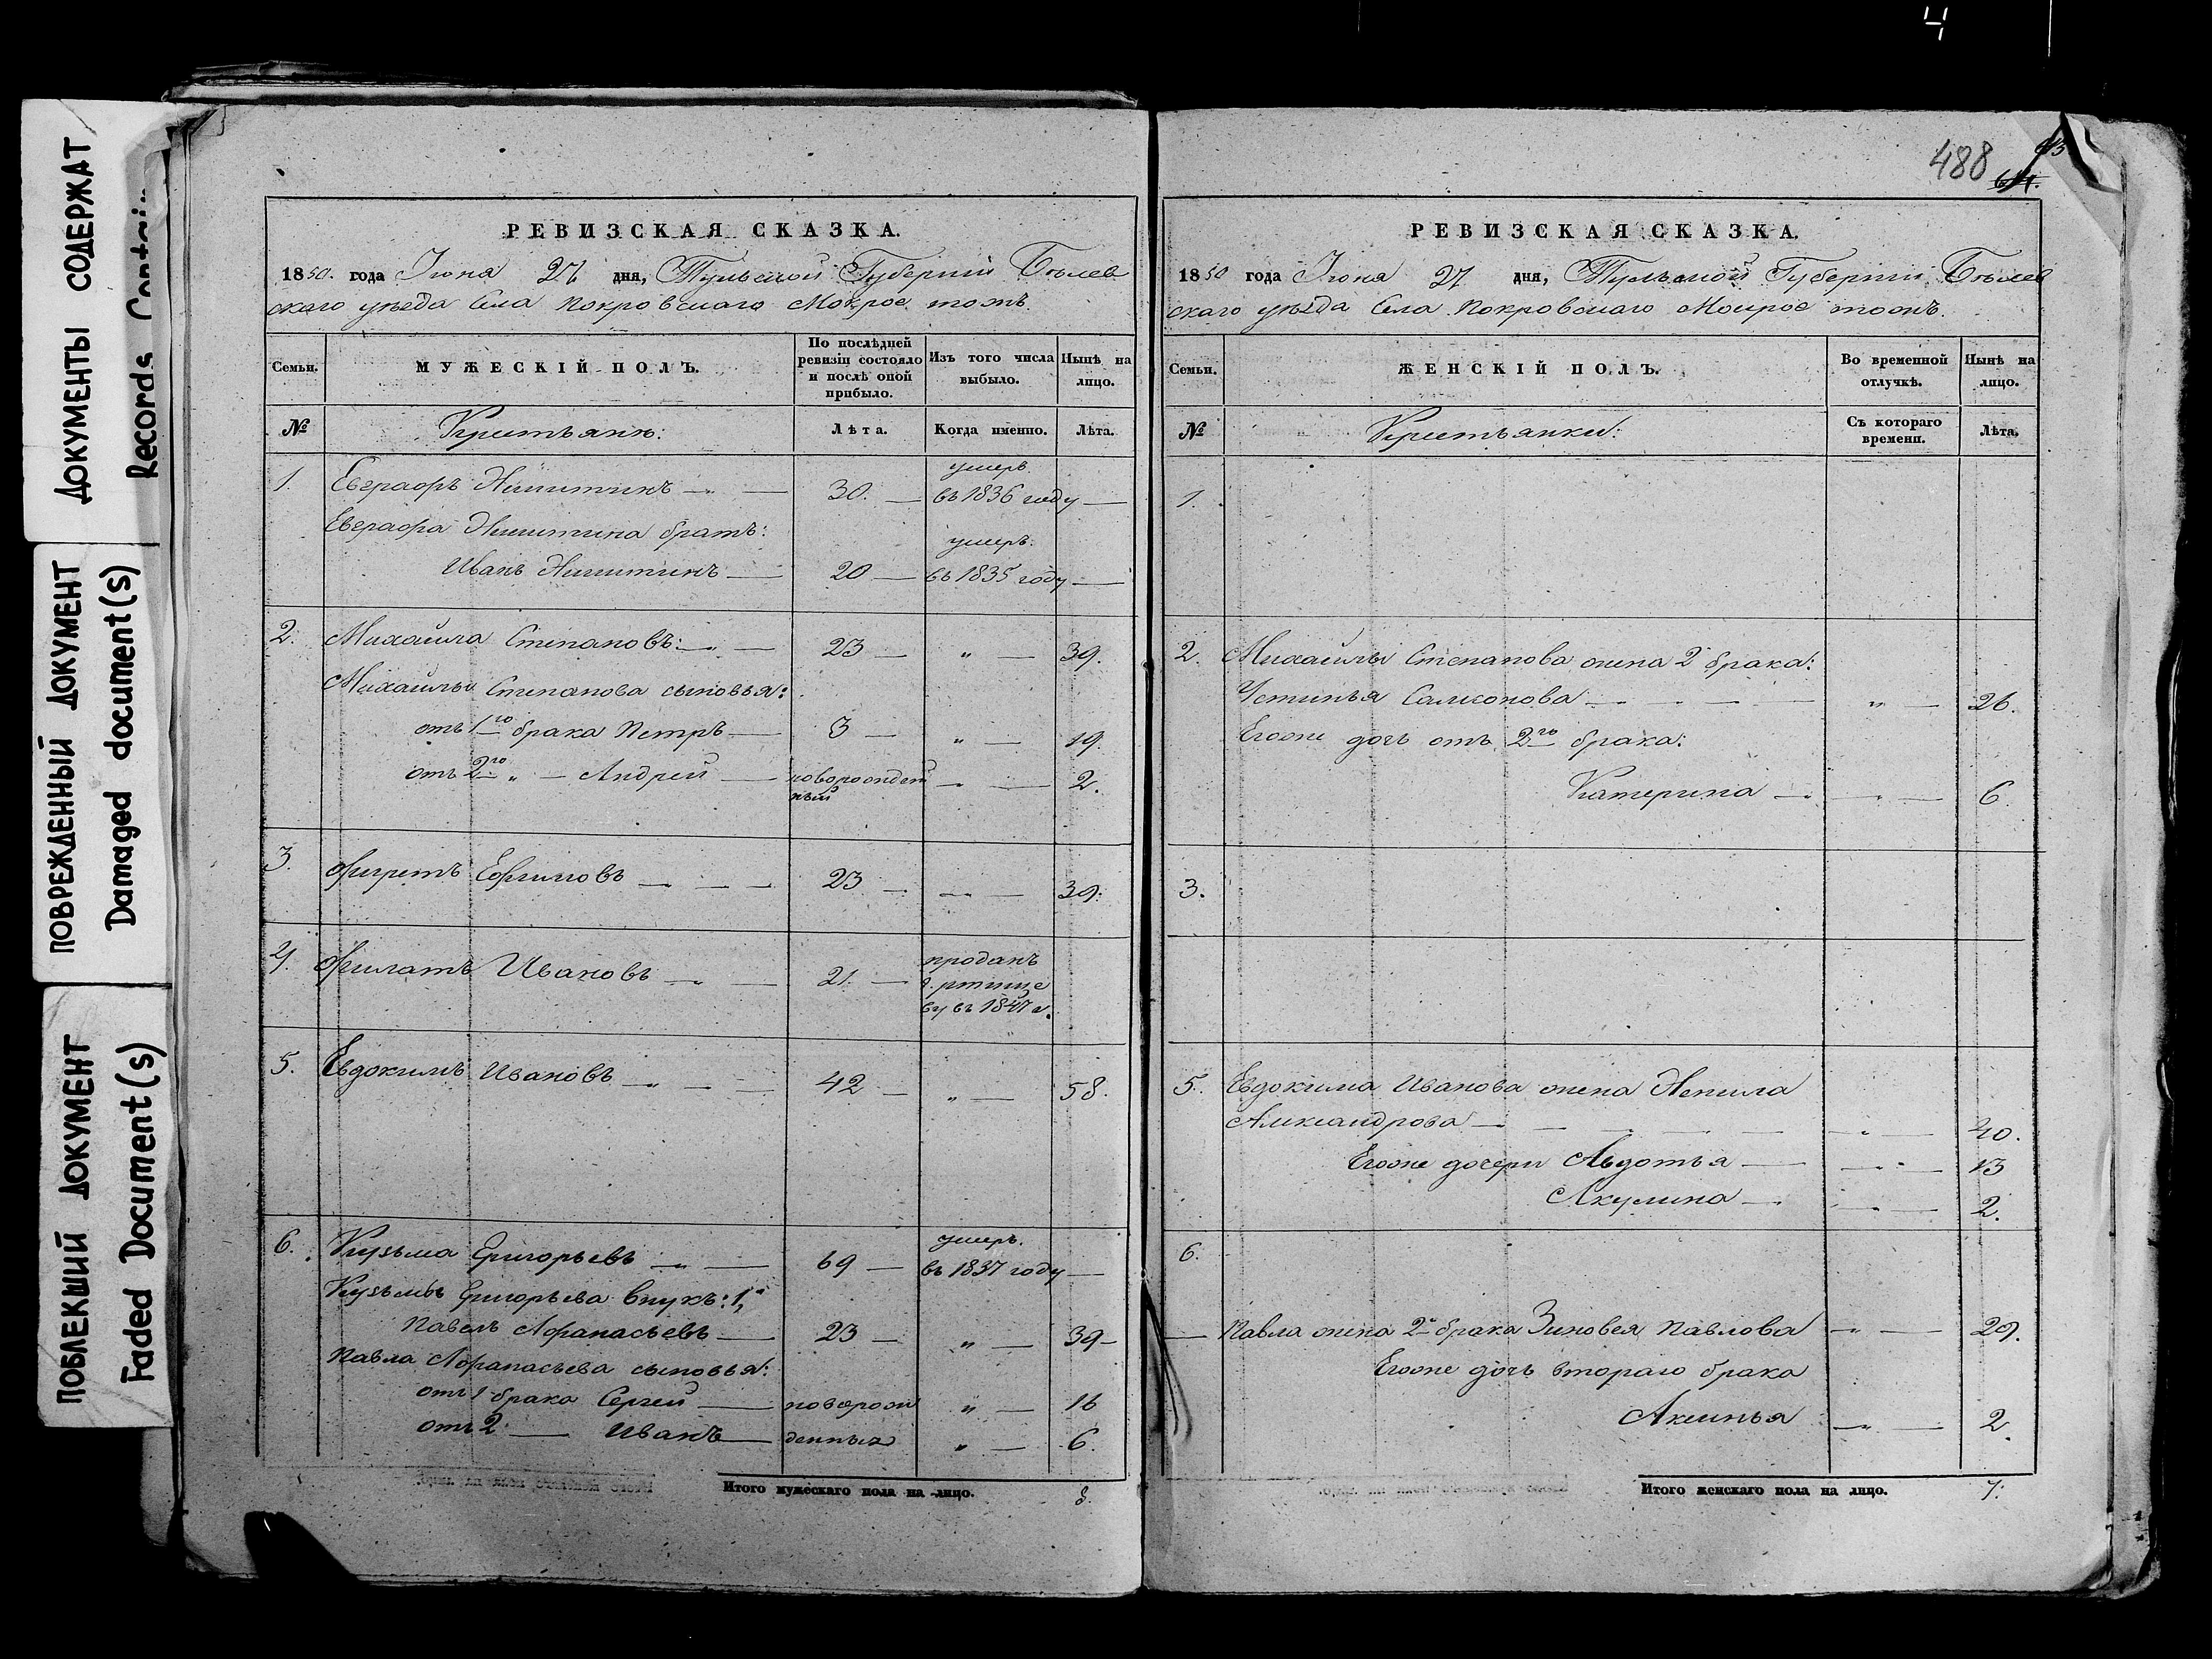 4
ДОКУМЕНТЫ СОДЕРЖАТ
Records
ПОВРЕЖДЕННЫЙ ДОКУМЕНТ
Damaged document(s)
ПОБЛЕКШИЙ ДОКУМЕНТ
Faded Document(s)
РЕВИЗСКАЯ СКАЗКА.
1850. года Июня 27 дня, Тульской Губернии Бѣлев
скаго уѣзда Села Покровскаго Мокрое тожъ.
Семьи.
МУЖЕСКІЙ ПОЛЪ.
По послѣдней
ревизіи состояло
и послѣ оной
прибыло.
Изъ того числа
выбыло.
Нынѣ на
лицо.
№
Крестьяне:
Лѣта.
Когда именно.
Лѣта.
1. Евграфъ Никитинъ 30. умеръ
въ 1836 году
Евграфа Никитина братъ:
Иванъ Никитинъ 20 умеръ.
въ 1835 году
2. Михайла Степановъ: 23 „ 39.
Михайлы Степанова сыновья:
отъ 1го брака Петръ 3 „ 19.
отъ 2го „ Андрей новорожден
ный „ 2.
3. Ефимовъ 23 „ 39.
4. Филатъ Ивановъ 21. проданъ
въ 1847 г.
5. Евдокимъ Ивановъ 42 „ 58.
6. Кузьма Григорьевъ 69 умеръ.
въ 1837 году
Кузьмы Григорьева внукъ: 1,й
Павелъ Афанасьевъ 23 „ 39
Павла Афанасьева сыновья:
отъ 1 брака Сергей новорож „ 16
отъ 2 Иванъ денныя „ 6.
Итого мужескаго пола на лицо. 8.
488
РЕВИЗСКАЯ СКАЗКА.
1850 года Июня 27 дня, Тульской Губернии Бѣлев
скаго уѣзда Села Покровскаго Мокрое тожъ.
Семьи.
ЖЕНСКІЙ ПОЛЪ.
Во временной
отлучкѣ.
Нынѣ на
лицо.
№
Крестьянки:
Съ котораго
времени.
Лѣта.
1.
2. Михайлы Степанова жена 2 брака:
Устинья Самсонова „ 26.
Егоже дочь отъ 2го брака:
Катерина „ 6.
3.
5. Евдокима Иванова жена Ненила
Александрова „ 40.
Егоже дочери Авдотья „ 13
Акулина „ 2.
6.
Павла жена 2го брака Зиновея Павлова „ 29.
Егоже дочь втораго брака
Аксинья „ 2.
Итого женскаго пола на лицо. 7.